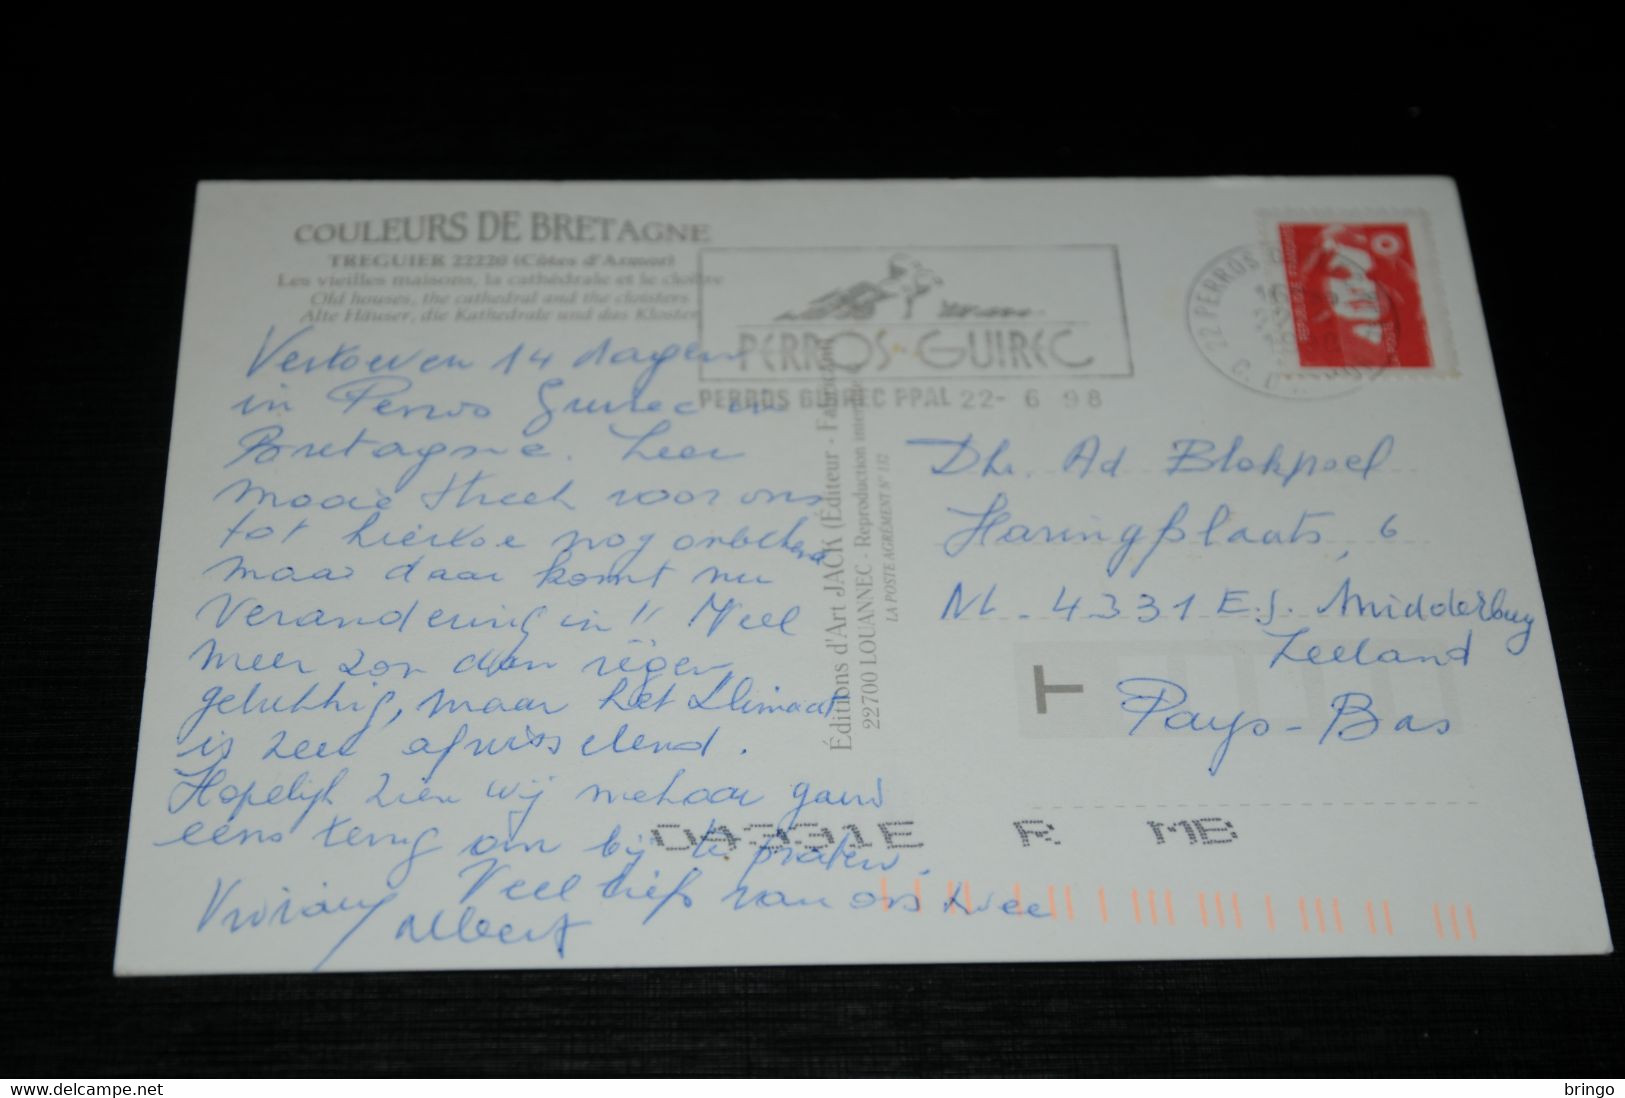 COULEURS DE BRETAGNE
TREGUIER 22220 (Côtes d'Armor)
Les vieilles maisons, la cathédrale et le cloître
Old houses, the cathedral and the cloisters
Alte Häuser, die Kathedrale und das Kloster
Vertoeven 14 dagen
in Perros Guirec en
Bretagne. Zeer
mooie streek voor ons
tot hiertoe nog onbekend
maar daar komt nu
verandering in!! Veel
meer zon dan regen,
gelukkig, maar het klimaat
is zeer afwisselend.
Hopelijk zien wij mekaar gauw
eens terug om bij te praten.
Veel liefs van ons twee
Viviany Albert
PERROS-GUIREC
PERROS GUIREC PPAL 22- 6 98
22 PERROS
REPUBLIQUE FRANÇAISE
LA POSTE
Éditions d'Art JACK (Éditeur - Fabricant)
22700 LOUANNEC - Reproduction interdite
LA POSTE AGRÉMENT N° 132
Dhr. Ad Blokpoel
Haringplaats, 6
NL - 4331 E.J. Middelburg
Zeeland
Pays-Bas
T
D4331E R MB
bringo